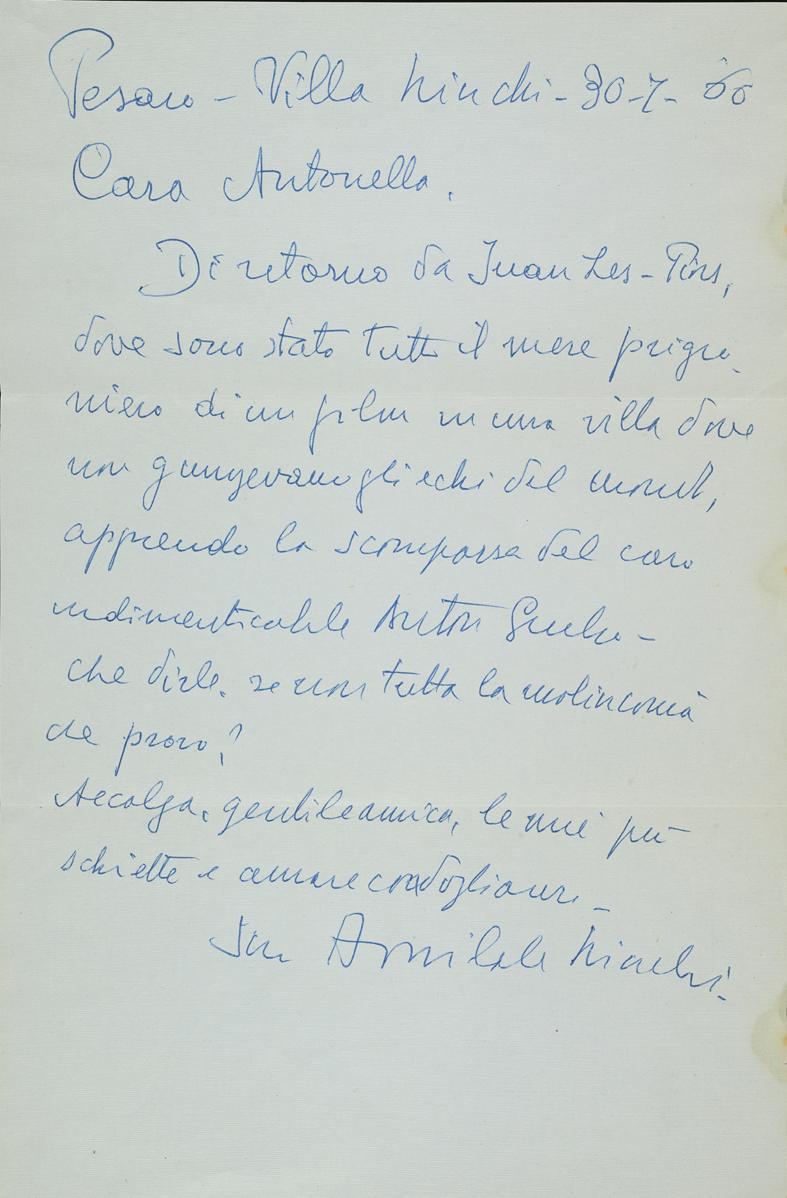 Pesaro - Villa Ninchi - 30-7-60
Cara Antonella,
Di ritorno da Juan Les-Pins,
dove sono stato tutto il mese prigio-
niero di un film in una villa dove
non giungevano gli echi del mondo,
apprendo la scomparsa del caro
indimenticabile Anton Giulio -
che dirle, se non tutta la malinconia
che provo?
Accolga, gentile amica, le mie più
schiette e amare condoglianze -
Suo Annibale Ninchi.